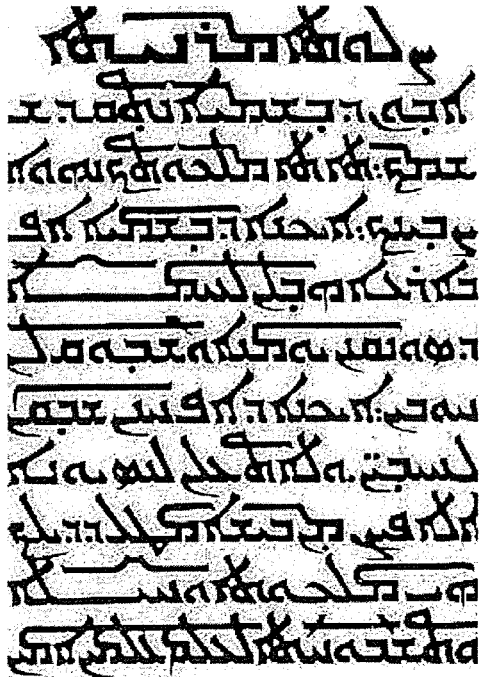 ܨܠܘܬܐ ܡܪܢܝܬܐ
ܐܒܘܢ ܕܒܫܡܝܐ ܢܬܩܕܫ
ܫܡܟ܆ ܬܐܬܐ ܡܠܟܘܬܟ ܘܢܗܘܐ
ܨܒܝܢܟ܆ ܐܝܟܢܐ ܕܒܫܡܝܐ ܐܦ
ܒܐܪܥܐ ܗܒ ܠܢ ܠܚܡܐ
ܕܣܘܢܩܢܢ ܝܘܡܢܐ ܘܫܒܘܩ ܠܢ
ܚܘܒܝܢ܆ ܐܝܟܢܐ ܕܐܦ ܚܢܢ ܫܒܩܢ
ܠܚܝܒ̈ܝܢ. ܘܠܐ ܬܥܠܢ ܠܢܣܝܘܢܐ
ܐܠܐ ܦܨܢ ܡܢ ܒܝܫܐ ܡܛܠ ܕܕܝܠܟ
ܗܝ ܡܠܟܘܬܐ ܘܚܝܠܐ
ܘܬܫܒܘܚܬܐ ܠܥܠܡ ܥܠܡܝܢ ܐܡܝܢ